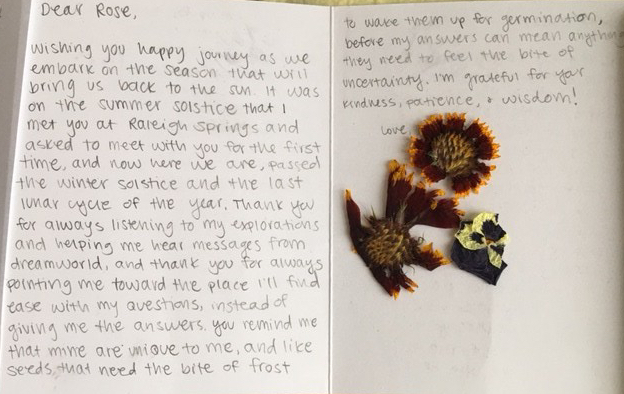 Dear Rose,
wishing you happy journey as we
embark on the season that will
bring us back to the sun. It was
on the summer solstice that I
met you at Raleigh Springs and
asked to meet with you for the first
time, and now here we are, passed
the winter solstice and the last
lunar cycle of the year. Thank you
for always listening to my explorations
and helping me hear messages from
dreamworld, and thank you for always
pointing me toward the place I'll find
ease with my questions, instead of
giving me the answers. You remind me
that mine are unique to me, and like
seeds that need the bite of frost
to wake them up for germination,
before my answers can mean anything
they need to feel the bite of
uncertainty. I'm grateful for your
kindness, patience, + wisdom!
Love,